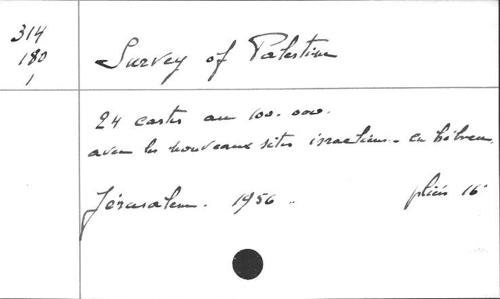 314
180
1
Survey of Palestine
24 cartes au 100.000.
avec les nouveaux sites israeliens - en hébreu.
Jérusalem. 1956 ..
pliés 16